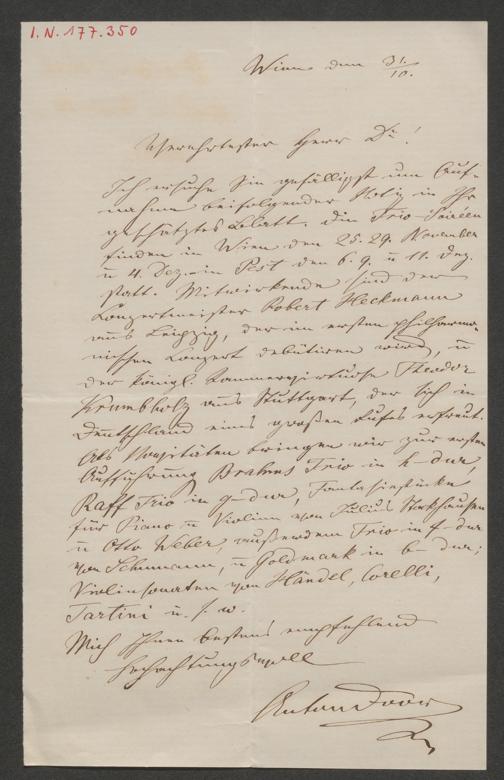 I.N. 177.350
Wien den 31/10.
Verehrtester Herr Dr!
Ich ersuche Sie gefälligst um Auf-
nahme beifolgender Notiz in Ihr
geschätztes Blatt. Die Trio-Soiréen
finden in Wien den 25. 29. November
u 4. Dez. in Pest den 6. 9. u 11. Dez.
statt. Mitwirkende sind der
Konzertmeister Robert Heckmann
aus Leipzig, der im ersten philharmo-
nischen Konzert debütiren wird, u
der königl. Kammervirtuose Theodor
Krumbholz aus Stuttgart, der sich in
Deutschland eines großen Rufes erfreut.
Als Novitäten bringen wir zur ersten
Aufführung Brahms Trio in h-dur,
Raff Trio in g-dur, Fantasiestücke
für Piano u Violine von Julius Stockhausen
u Otto Weber, außerdem Trio in f dur
von Schumann, u Goldmark in b-dur;
Violinsonaten von Händel, Corelli,
Tartini u. s. w.
Mich Ihnen bestens empfehlend
hochachtungsvoll
Anton Door